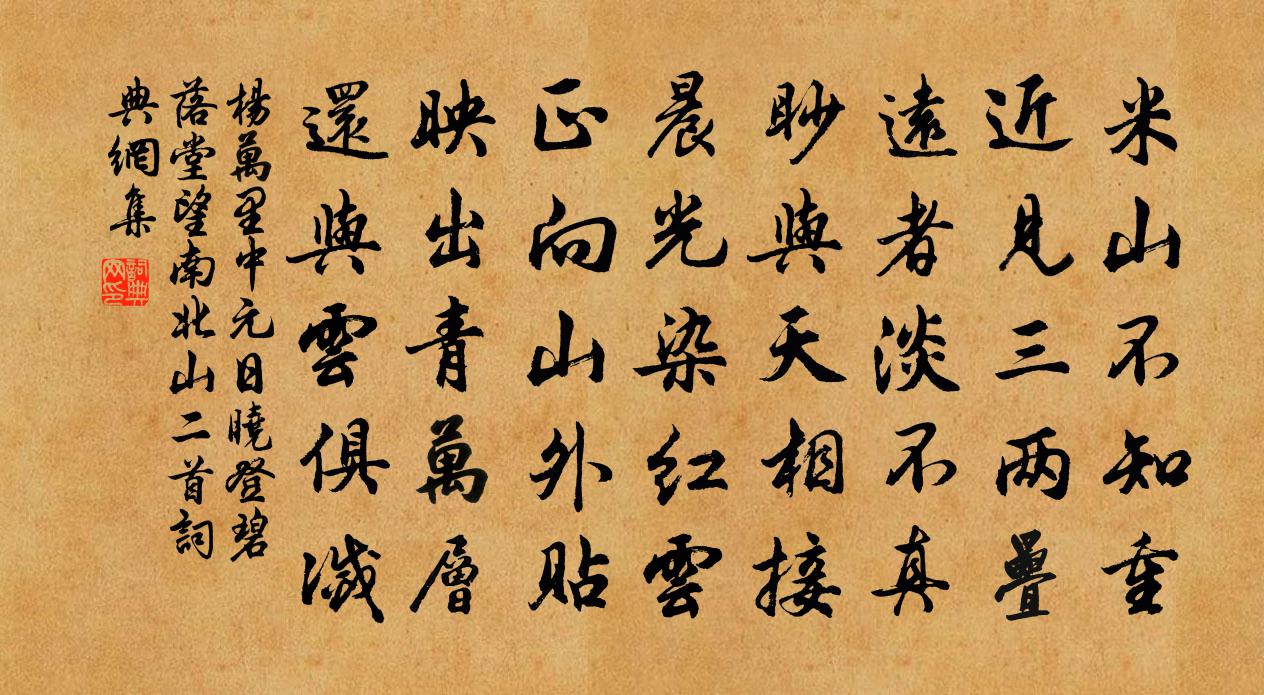 米山不知重
近見三两疊
遠者淡不真
眇與天相接
晨光染紅雲
正向山外貼
映出青萬層
還與雲俱滅
楊萬里中元日曉登碧
落堂望南北山二首詞
典網集
詞典网印